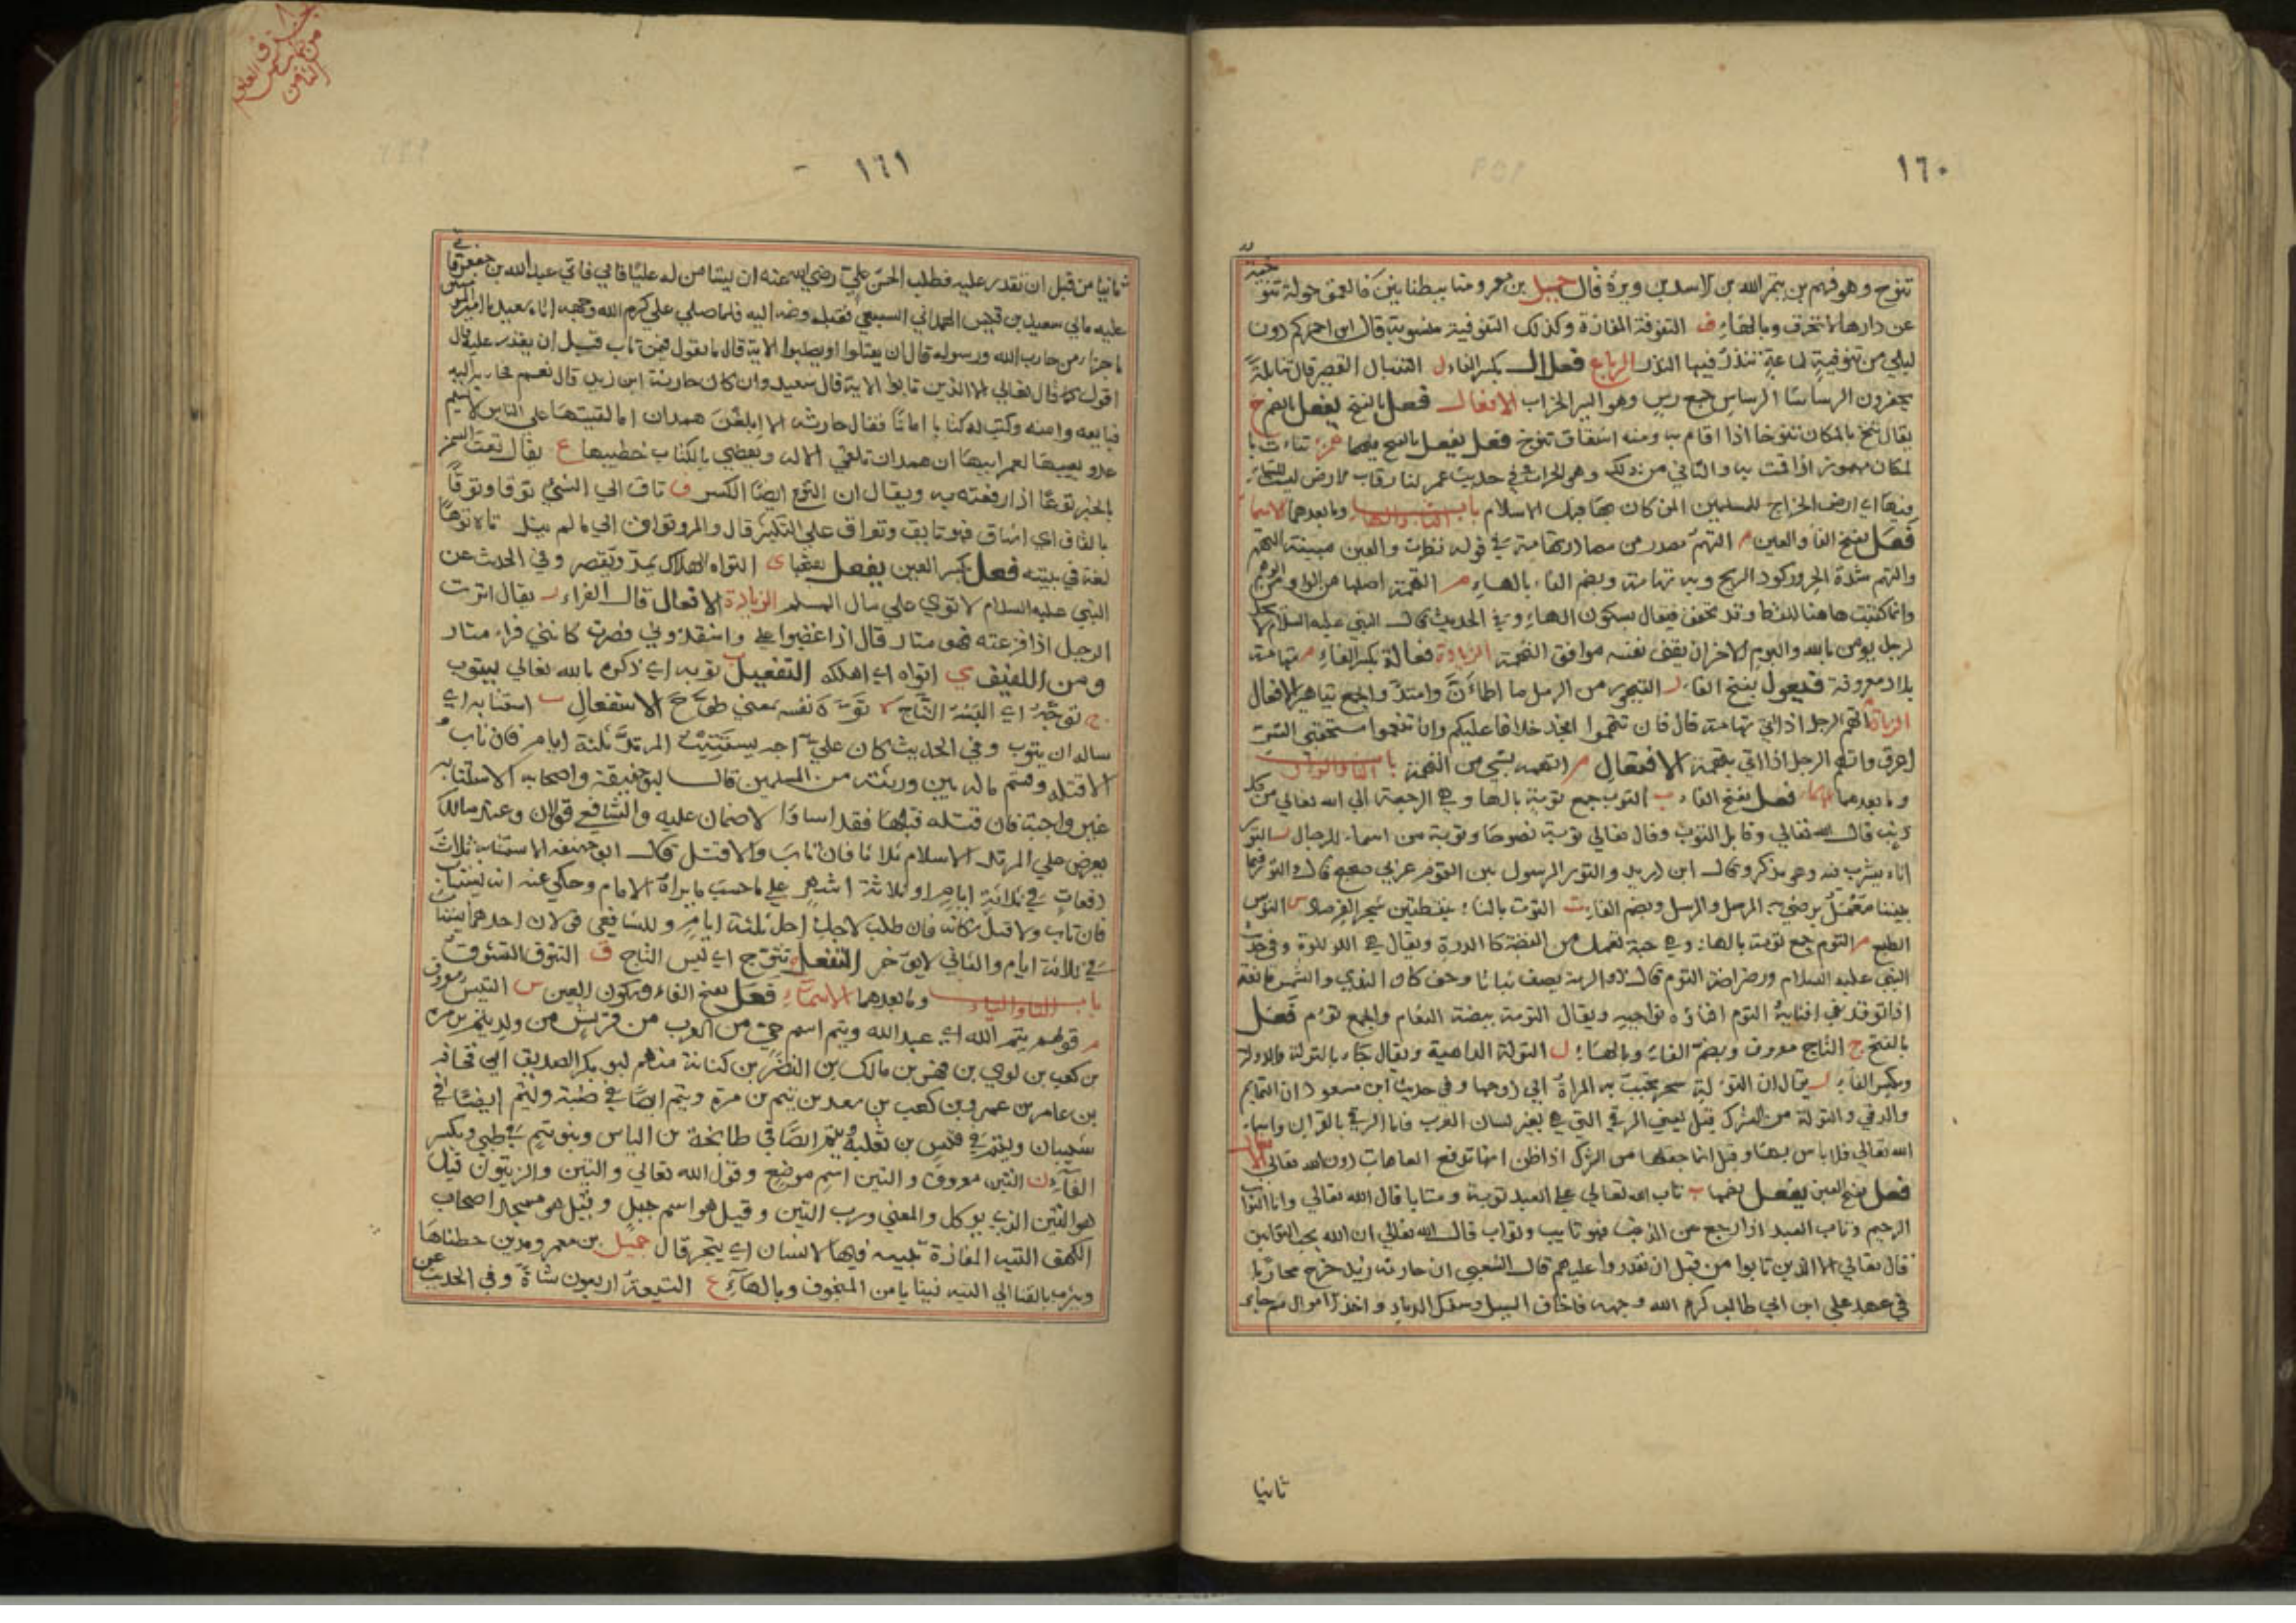 ١٦٠
تنوخ وهو فهم بن تيم الله بن الاسد بن وبرة قال جميل بن معمر
عن دارها لا تخرق وبالهاء ف التنوفة المفازة وكذلك التنوفية منسوبة قال ابن احمر كم دون
ليلى من تنوفية لماعة تنذر فيها النذر الرباعي فعلال بكسر الفاء ل التنبال القصير قال تنابلة
يحفرون الرساسا الرساس جمع رس وهو البير الخراب الافعال فعل بالفتح يفعل بالضم خ
يقال تنخ بالمكان تنوخا اذا اقام به ومنه اشتقاق تنوخ فعل يفعل بالفتح فيهما همزة تناءت با
لمكان مهموز اذا قمت به والثاني من ذلك وفي حديث عمر لنا رقاب الارض ليس للتناء
فيها اي ارض الخراج للمسلمين لمن كان بها قبل الاسلام باب التاء والهاء وما بعدهما الاسماء
فعل بفتح الفاء والعين م التهم مصدر من مصادر تهامة في قوله نظرت والعين مبينة التهم
والتهم شدة الحر وركود الريح وبه تهامة وبضم الفاء بالهاء م التهمة اصلها من الواو
وانما كتبت هاهنا للفظ وقد تخفف فيقال بسكون الهاء وفي الحديث قال النبي عليه السلام لا يحل
لرجل يومن بالله واليوم الاخر ان يقف نفسه مواقف التهمة الزيادة فعالة بكسر الفاء م تهامة
بلاد معروفة فيعول بفتح الفاء ر التيهور من الرمل ما اطمأن وامتد والجمع تياهير الافعال
الزيادة اتهم الرجل اذا اتى تهامة قال فان تتهموا انجد خلافا عليكم وان تعمنوا مستحقبي الشر
اعرق واتهم الرجل اذا اتى بتهمة الافتعال م اتهمه بشي من التهمة باب التاء والواو
وما بعدهما الاسماء فعل بفتح الفاء ب التوب جمع توبة بالهاء وهي الرجعة الى الله تعالى من كل
ذنب قال الله تعالى وقابل التوب وقال تعالى توبة نصوحا وتوبة من اسماء الرجال ر التور
اناء يشرب فيه وهو مذكر وقال ابن دريد والتور الرسول بين القوم عربي صحيح قال والتور فيما
بيننا معمل يرضى به المرسل والمرسل وبضم الفاء ت التوت بالتاء بنقطتين شجر الفرصاد س التوس
الطبع م التوم جمع تومة بالهاء وهي حبة تعمل من الفضة كالدرة ويقال هي اللولوة وفي حديث
النبي عليه السلام ورضراضه التوم قال ذو الرمة يصف نباتا وحف كان الندى والشمس ماتعة
اذا توقد في افنانه التوم افناؤه نواحيه ويقال التومة بيضة النعام والجمع توم فعل
بالفتح ج التاج معروف وبضم الفاء وبالهاء ل التولة الداهية ويقال جاء بالتولة والدولة
وبكسر الفاء ل يقال ان التولة سحر تحبب به المراة الى زوجها وفي حديث ابن مسعود ان التمايم
والرقى والتولة من الشرك قيل يعني الرقى التي هي بغير لسان العرب فاما الرقى بالقران واسماء
الله تعالى فلا باس بها وقيل انما جعلها من الشرك اذا ظن انها تدفع العاهات دون الله تعالى الافعال
فعل بفتح العين يفعل بضمها ب تاب الله تعالى على العبد توبة ومتابا قال الله تعالى وانا التواب
الرحيم وتاب العبد اذا رجع عن الذنب فهو تايب وتواب قال الله تعالى ان الله يحب التوابين
قال تعالى الا الذين تابوا من قبل ان تقدروا عليهم قال الشعبي ان حارثة بن زيد خرج محاربا
في عهد علي ابن ابي طالب كرم الله وجهه فاخاف السبيل وسفك الدماء واخذ الاموال ثم جاء
ثانيا
١٦١
ثانيا من قبل ان نقدر عليه فطلب الحسن بن علي رضي الله عنه ان يستامن له عليا فابى فاتى عبد الله بن جعفر فابى
عليه فاتى سعيد بن قيس الهمداني السبيعي فقبله وضمه اليه فلما صلى علي كرم الله وجهه اتاه سعيد يا امير المومنين
ما جزاء من حارب الله ورسوله قال ان يقتلوا او يصلبوا الاية قال ما تقول فيمن تاب قبل ان يقدر عليه قال
اقول كما قال تعالى الا الذين تابوا الاية قال سعيد وان كان حارثة ابن زيد قال نعم فجاء به اليه
فبايعه وامنه وكتب له كتابا امانا فقال حارثة الا ابلغن همدان اما لقيتها على الناي لا يسلم
عدو يعيبها لعمر ابيها ان همدان تتقي الاله ويقضي بالكتاب خطيبها ع يقال تعت السمن
بالخبز توعا اذا رفعته به ويقال ان التوع ايضا الكسر ق تاق الى الشي توقا وتوقا
بالقاف اي اشتاق فهو تايق وتواق على التكثير قال والمرء تواق الى ما لم ينل ه تاه توها
لغة في يتيه فعل بكسر العين يفعل بفتحها ى التواء الهلاك يمد ويقصر وفي الحديث عن
النبي عليه السلام لا توى على مال المسلم الزيادة الافعال قال الفراء ر يقال اترت
الرجل اذا افزعته فهو متار قال اذا غضبوا علي واشقذوني فصرت كانني فراء متار
ومن اللفيف ى اتواه اي اهلكه التفعيل ب توبه اي ذكره بالله تعالى ليتوب
ج توجه اي البسه التاج ه توه نفسه بمعنى طوح الاستفعال ب استتابه اي
ساله ان يتوب وفي الحديث كان علي يستتيب المرتد ثلثة ايام فان تاب و
الا قتله وقسم ماله بين ورثته من المسلمين قال ابو حنيفة واصحابه الاستتابة
غير واجبة فان قتله قبلها فقد اسا ولا ضمان عليه وللشافعي قولان وعند مالك
يعرض على المرتد الاسلام ثلاثا فان تاب والا قتل قال ابو حنيفة الاستتابة ثلاث
دفعات في ثلاثة ايام او ثلاثة اشهر على ما حسب ما يراه الامام وحكي عنه انه يستتاب
فان تاب والا قتل مكانه فان طلب لاجل اجل ثلثة ايام وللشافعي قولان احدهما يستتاب
في ثلاثة ايام والثاني لا يوخر التفعل ج تتوج اي لبس التاج ق التتوق التشوق
باب التاء والياء وما بعدهما الاسماء فعل بفتح الفاء وسكون العين س التيس معروف
م قولهم تيم الله اي عبد الله وتيم اسم حي من العرب من قريش من ولد تيم بن مرة
بن كعب بن لوي بن فهر بن مالك بن النضر بن كنانة منهم ابو بكر الصديق ابي قحافة
بن عامر بن عمرو بن كعب بن سعد بن تيم بن مرة وتيم ايضا في ضبة وتيم ايضا في
شيبان وتيم في قيس بن ثعلبة وتيم ايضا في طابخة بن الياس وبنو تيم في طي وبكسر
الفاء ن التين معروف والتين اسم موضع وقول الله تعالى والتين والزيتون قيل
هو التين الذي يوكل والمعنى ورب التين وقيل هو اسم جبل وقيل هو مسجد اصحاب
الكهف التيه المفازة يتيه فيها الانسان اي يتحير قال جميل بن معمر ومدين حطناها
عن
ونرمي بالقنا الى التيه نبتا يا من المنخوف وبالهاء ع التيعة اربعون شاة وفي الحديث